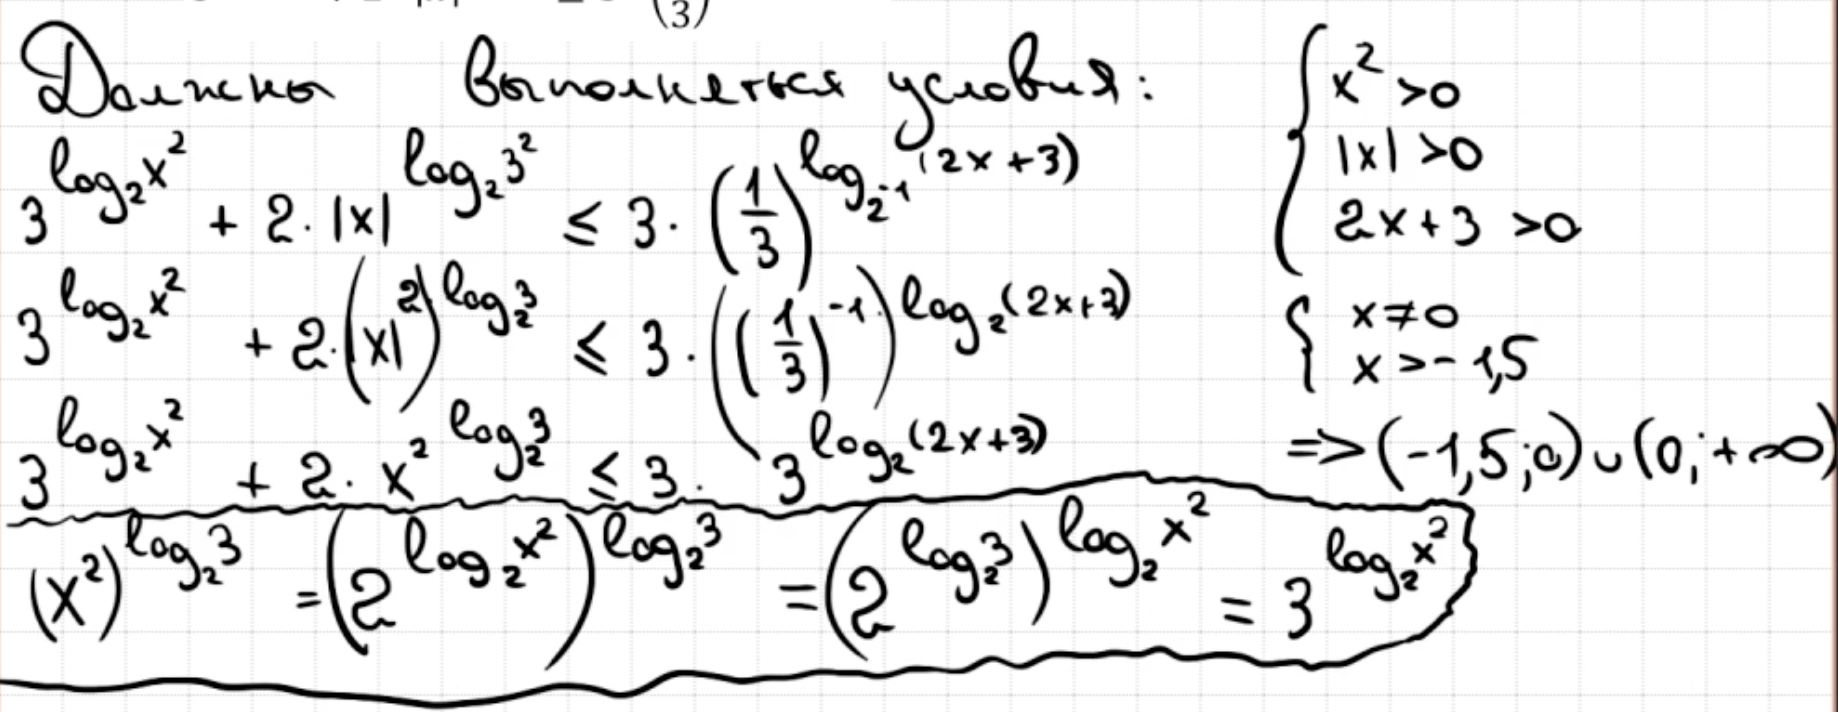 Должны выполняться условия:
{ x² > 0
|x| > 0
2x + 3 > 0
3^(log₂ x²) + 2 · |x|^(log₂ 3²) ≤ 3 · (1/3)^(log_(2⁻¹) (2x + 3))
3^(log₂ x²) + 2 · (|x|²)^(log₂ 3) ≤ 3 · ((1/3)⁻¹)^(log₂ (2x+3))
{ x ≠ 0
x > -1,5
3^(log₂ x²) + 2 · x^(2 log₂ 3) ≤ 3 · 3^(log₂ (2x+3))
=> (-1,5; 0) ∪ (0; +∞)
(x²)^(log₂ 3) = (2^(log₂ x²))^(log₂ 3) = (2^(log₂ 3))^(log₂ x²) = 3^(log₂ x²)